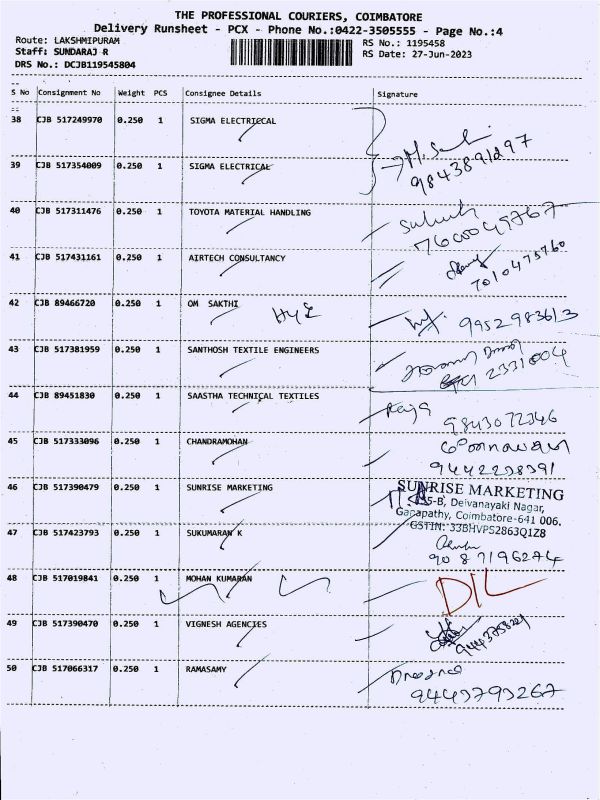 THE PROFESSIONAL COURIERS, COIMBATORE
Delivery Runsheet - PCX - Phone No.:0422-3505555 - Page No.:4
Route: LAKSHMIPURAM RS No.: 1195458
Staff: SUNDARAJ R RS Date: 27-Jun-2023
DRS No.: DCJB119545804
S No Consignment No Weight PCS Consignee Details Signature
38 CJB 517249970 0.250 1 SIGMA ELECTRICCAL
39 CJB 517354009 0.250 1 SIGMA ELECTRICAL
40 CJB 517311476 0.250 1 TOYOTA MATERIAL HANDLING
41 CJB 517431161 0.250 1 AIRTECH CONSULTANCY
7010475760
42 CJB 89466720 0.250 1 OM SAKTHI
9952983613
43 CJB 517381959 0.250 1 SANTHOSH TEXTILE ENGINEERS
44 CJB 89451830 0.250 1 SAASTHA TECHNICAL TEXTILES Raja
9843072346
45 CJB 517333096 0.250 1 CHANDRAMOHAN
9442238391
46 CJB 517390479 0.250 1 SUNRISE MARKETING SUNRISE MARKETING
Deivanayaki Nagar,
Ganapathy, Coimbatore-641 006.
GSTIN: 33BHVPS2863Q1Z8
47 CJB 517423793 0.250 1 SUKUMARAN K
9087196274
48 CJB 517019841 0.250 1 MOHAN KUMARAN D/L
49 CJB 517390470 0.250 1 VIGNESH AGENCIES
50 CJB 517066317 0.250 1 RAMASAMY
9443793267